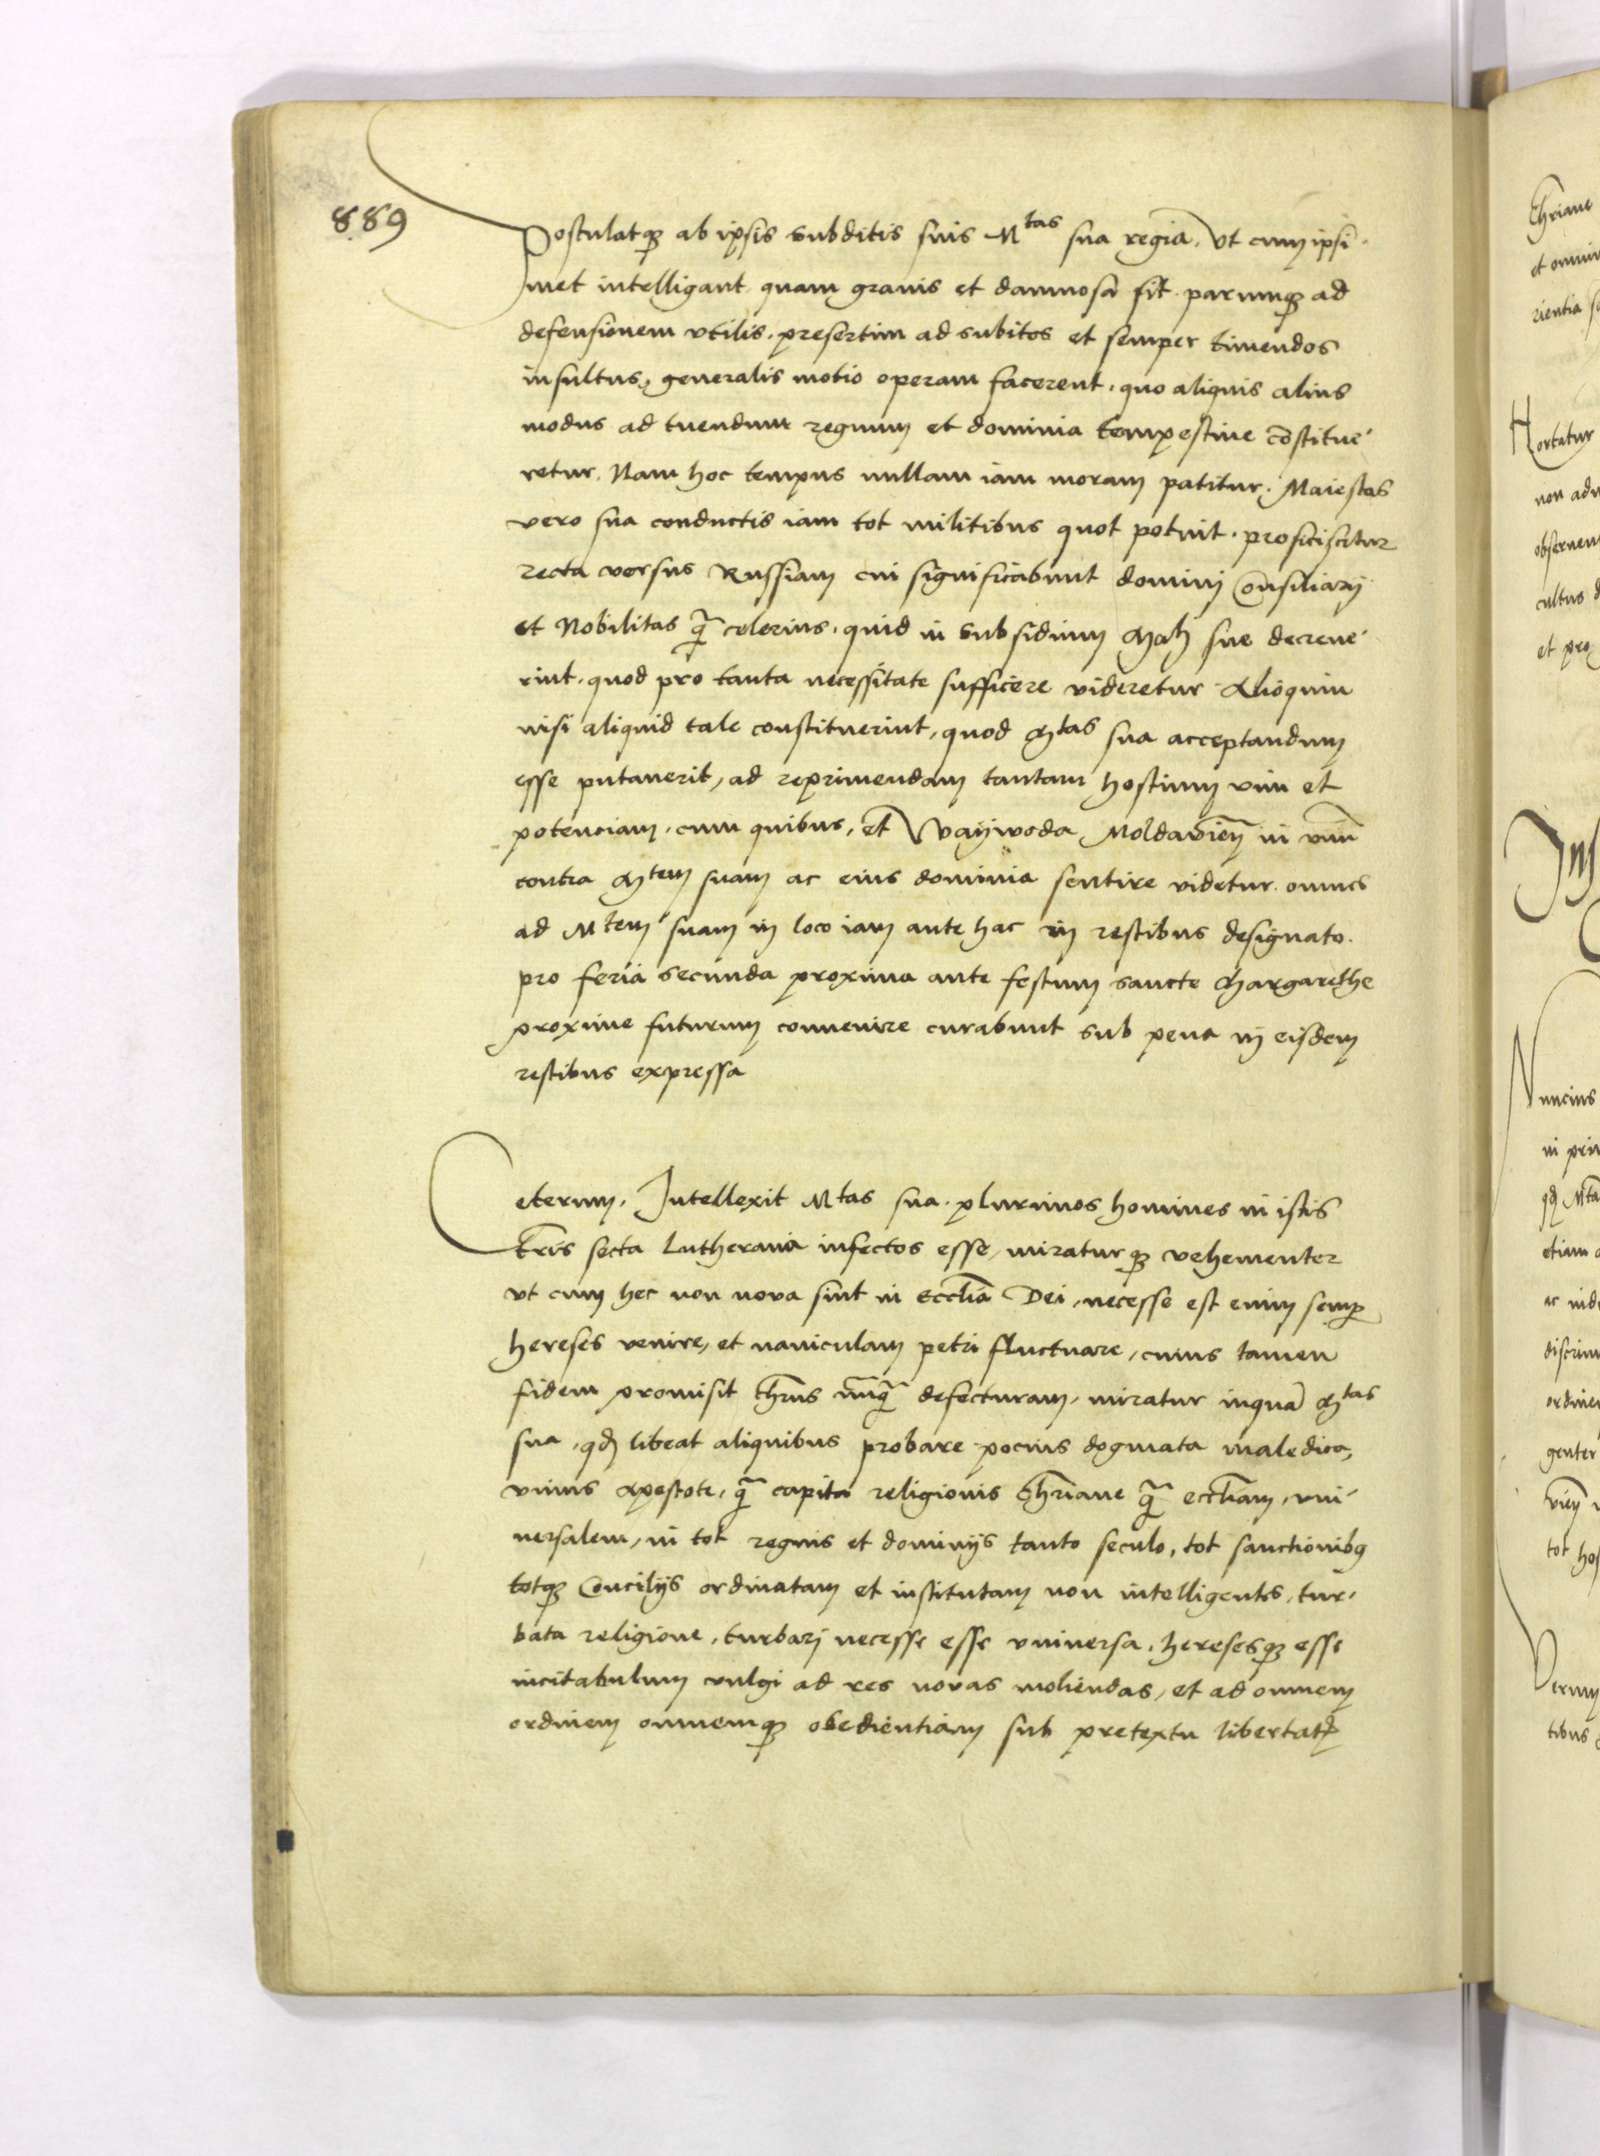 889
Postulatq ab ipsis subditis suis Mtas sua regia. Vt cum ipsi
met intelligant quam grauis et damnosa sit. parumq ad
defensionem vtilis. presertim ad subitos et semper timendos
insultus, generalis motio operam facerent. quo aliquis alius
modus ad tuendum regnum et dominia tempestiue constitue
retur. Nam hoc tempus nullam iam moram patitur. Maiestas
vero sua conductis iam tot militibus quot potuit. proficiscitur
recta versus Russiam cui significabunt domini Consiliarij
et Nobilitas q̃ celerius. quid in subsidium Matj sue decreue
rint. quod pro tanta necessitate sufficere videretur Alioquin
nisi aliquid tale constituerint, quod Mtas sua acceptandum
esse putauerit, ad reprimendam tantam hostium vim et
potenciam. cum quibus, et Vaywoda Moldauień in vnũ
contra Mtem suam ac eius dominia sentire videtur. omnes
ad Mtem suam in loco iam ante hac in restibus designato.
pro feria secunda proxima ante festum sancte Margarethe
proxime futurum conuenire curabunt sub pena in eisdem
restibus expressa
Ceterum. Intellexit Mtas sua. plurimos homines in istis
tr̃ris secta Lutherana infectos esse, miraturq vehementer
vt cum hec non noua sint in Eccl̃ia Dei, necesse est enim semp
hereses venire, et nauiculam petri fluctuare, cuius tamen
fidem promisit Chr̃us nunq̃ defecturam, miratur inquã Mtas
sua, qđ libeat aliquibus probare pocius dogmata maledica,
vnius apostote, q̃ capita religionis Chr̃iane q̃ eccl̃iam, vni
uersalem, in tot regnis et dominijs tanto seculo, tot sanctionibq
totq Concilijs ordinatam et institutam non intelligentes, tur
bata religione, turbari necesse esse vniuersa, heresesq esse
incitabulum vulgi ad res nouas moliendas, et ad omnem
ordinem omnemq obedientiam sub pretextu libertatꝭ
Chr̃iane
rientia
Hortatur
cultus
et pro
Nuncius
in
etiam
tot
Verum
tibus